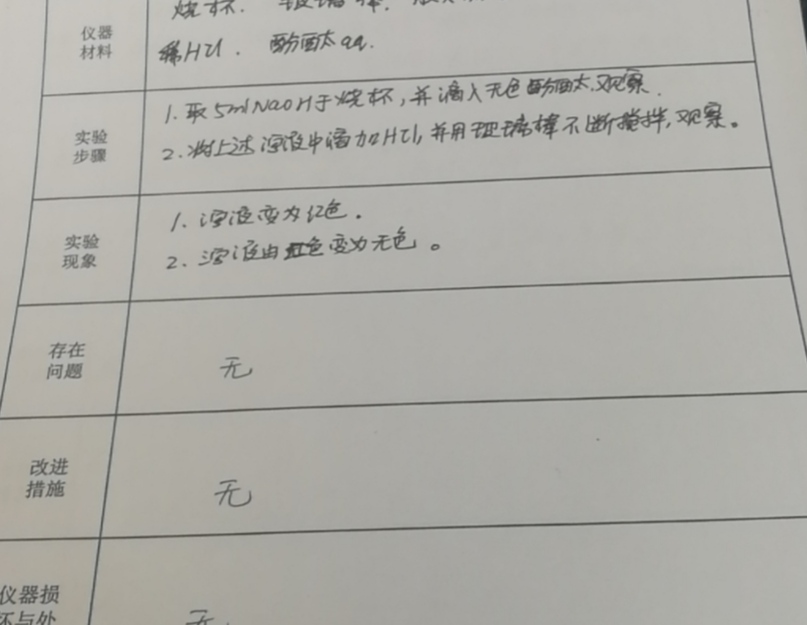 仪器
材料
烧杯. 玻璃棒.
稀HCl. 酚酞aq.
实验
步骤
1.取5mlNaOH于烧杯,并滴入无色酚酞,观察.
2.将上述溶液中滴加HCl,并用玻璃棒不断搅拌,观察。
实验
现象
1.溶液变为红色.
2.溶液由红色变为无色。
存在
问题
无
改进
措施
无
仪器损
坏与处
无